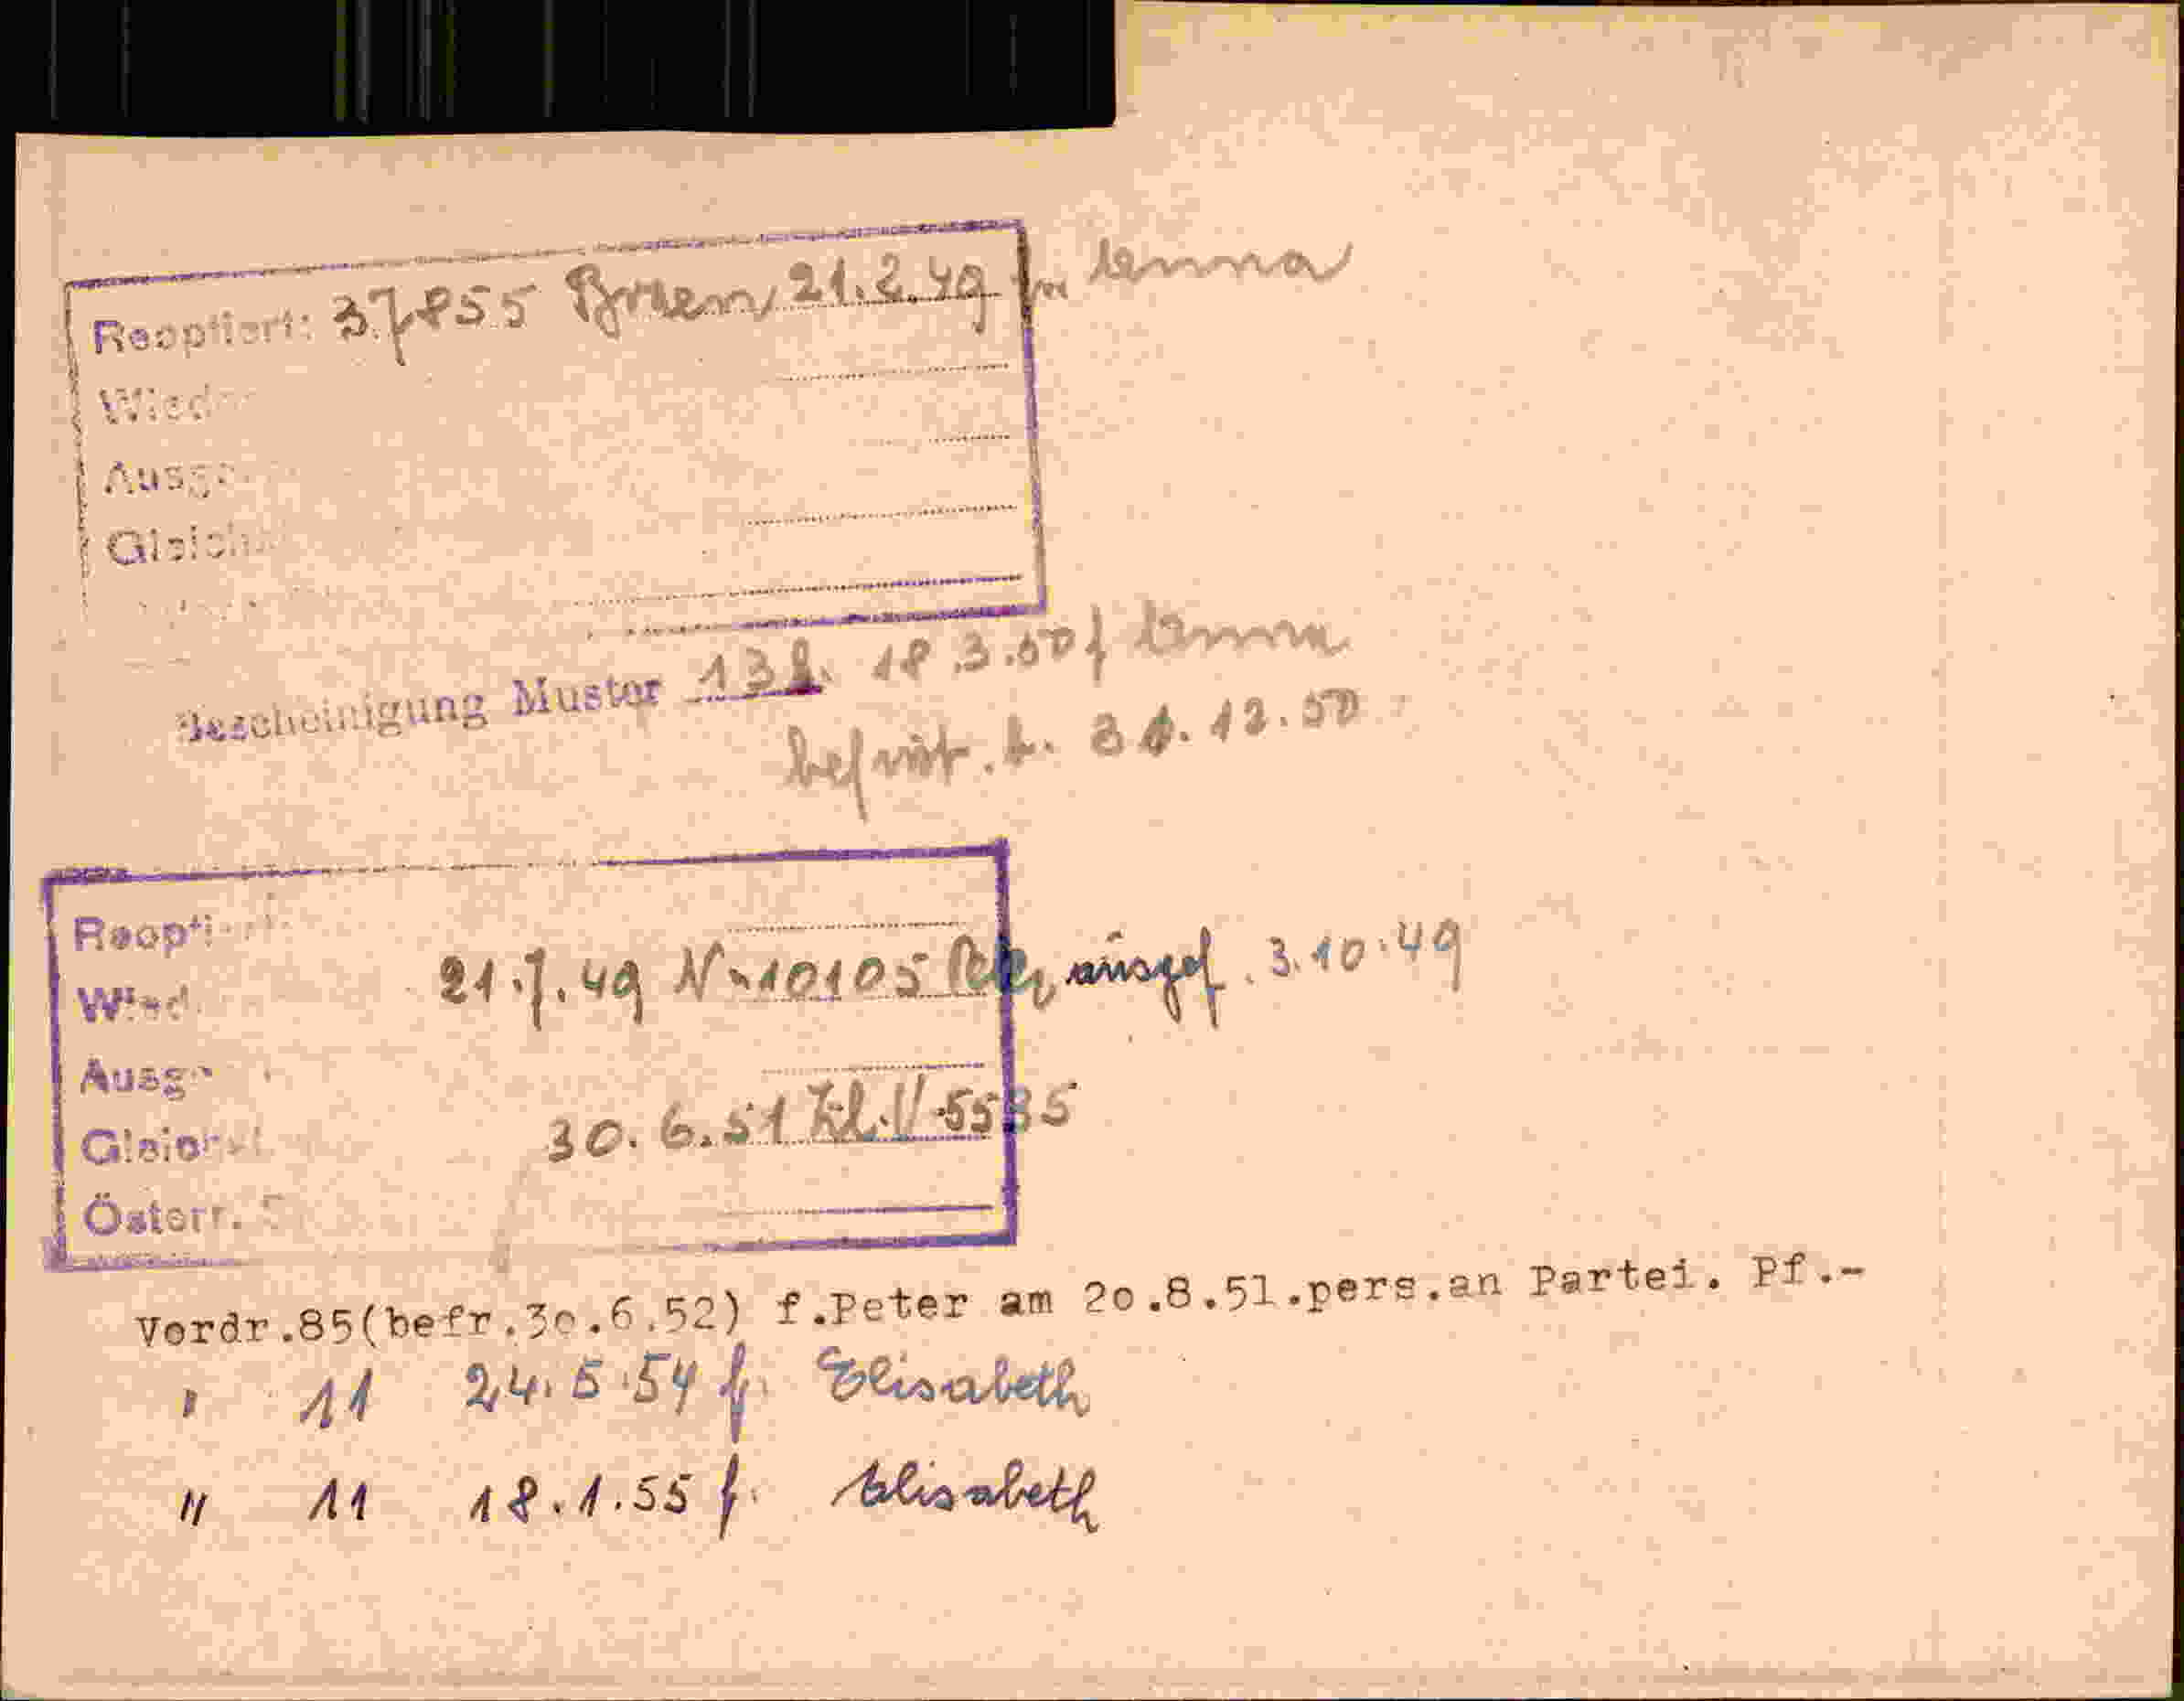 Reoptiert: 37855 Bozen 21.2.49 für Anna
Wied
Ausge
Gleich
Bescheinigung Muster 13 18.3.50 f Anna
befrist. 31.12.50
Reopti
21.7.49 Nr 10105 ausgef. 3.10.49
Wied
Ausge
30.6.51 Zl.V-5585
Gleich
Österr.
Vordr.85(befr.3o.6.52) f.Peter am 2o.8.51.pers.an Partei. Pf.-
" 11 24.5.54 f. Elisabeth
" 11 18.1.55 f. Elisabeth